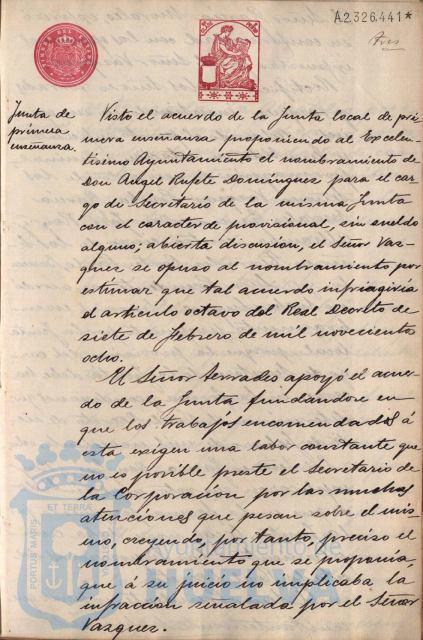 A2.326.441*
Tres
Junta de
primera
enseñanza.
Visto el acuerdo de la Junta local de pri
mera enseñanza proponiendo al Excelen-
tisimo Ayuntamiento el nombramiento de
Don Angel Rufete Dominguez para el car-
go de Secretario de la misma Junta
con el caracter de provisional, sin sueldo
alguno; abierta discusion, el Señor Vaz-
quez se opuso al nombramiento por
estimar que tal acuerdo infringiria
el articulo octavo del Real Decreto de
siete de Febrero de mil novecientos
ocho.
El Señor Terrades apoyó el acuer
do de la Junta fundandose en
que los trabajos encomendados á
esta exigen una labor constante que
no es posible preste el Secretario de
la Corporacion por las muchas
atenciones que pesan sobre el mis-
mo, creyendo, por tanto, preciso el
nombramiento que se proponia,
que á su juicio no implicaba la
infraccion señalada por el Señor
Vazquez.
PORTUS MARIS
ET TERRA
Ayuntamiento de
HUELVA